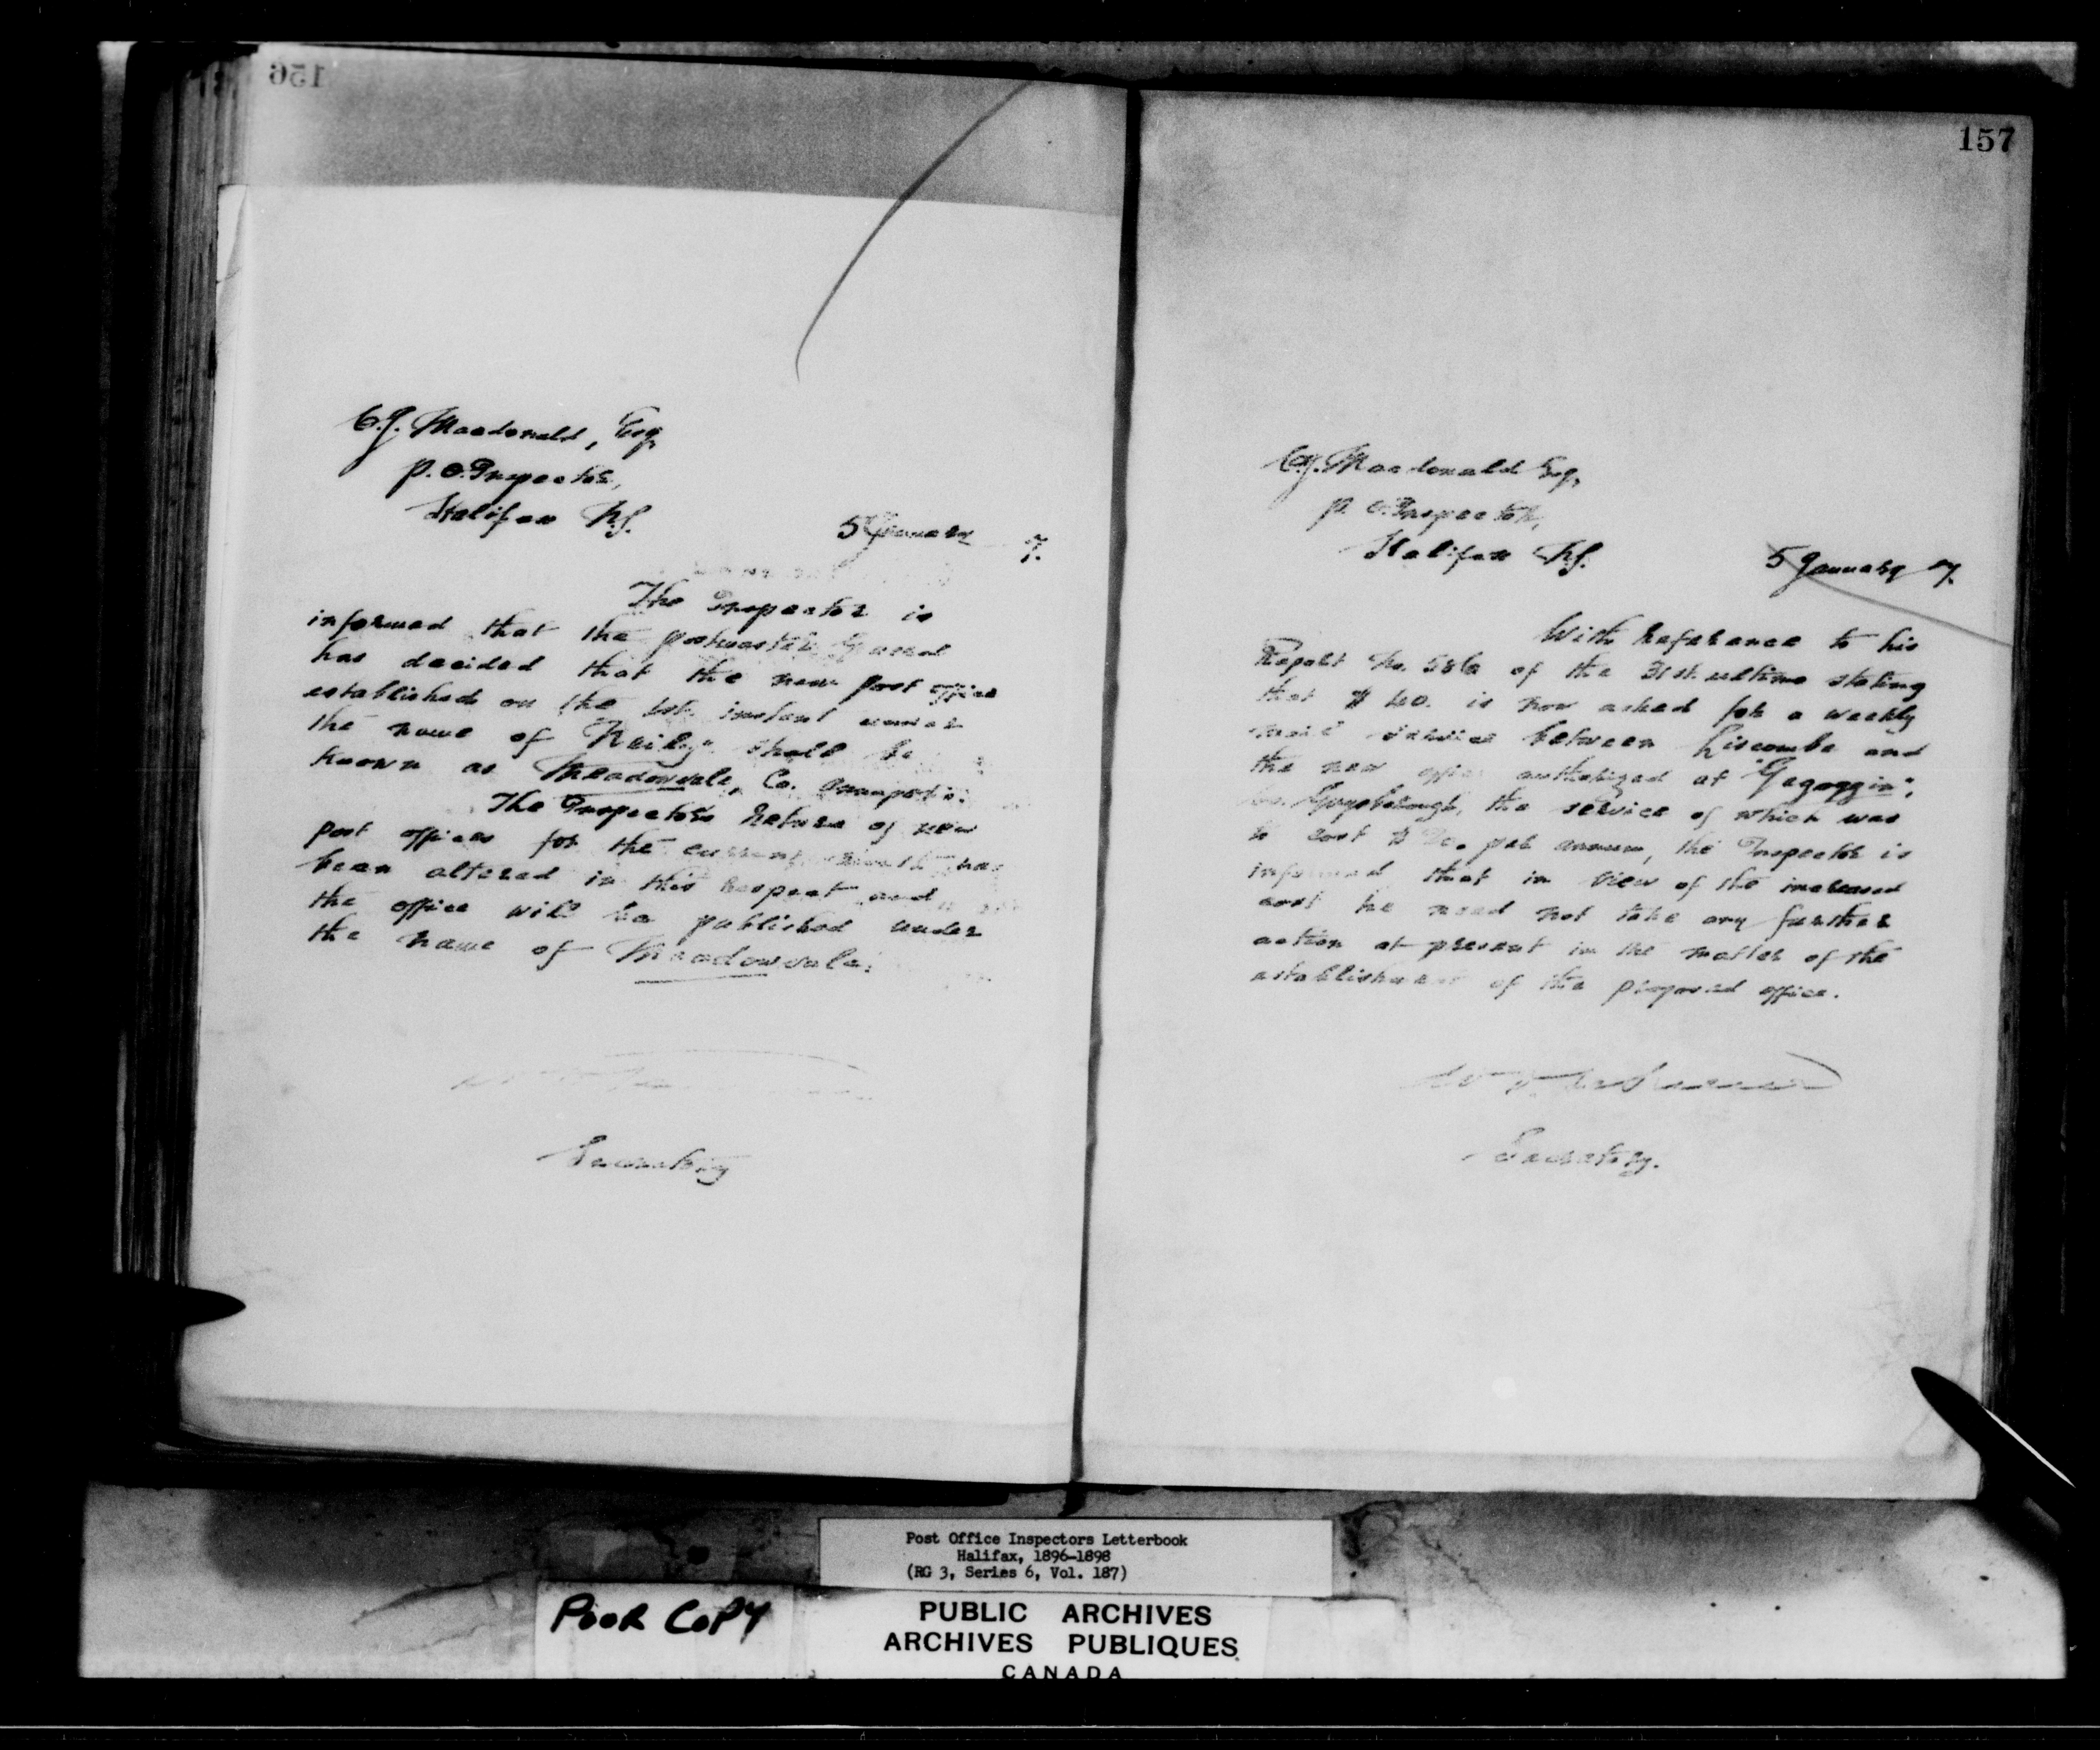 156
C.J. Macdonald, Esq,
P.O. Inspector,
Halifax N.S.
5 January 7.
The Inspector is
informed that the postmaster General
has decided that the new post office
established on the 1st. instant under
the name of shall be
known as Meadowvale, Co. Annapolis.
The Inspector's Return of new
post offices for the current month has
been altered in this respect and
the office will be published under
the name of Meadowvale.
Secretary
157
C.J. Macdonald Esq,
P.O. Inspector,
Halifax N.S.
5 January 97.
With reference to his
Report No. 586 of the 31st. ultimo stating
that $ 40. is now asked for a weekly
mail service between Liscombe and
the new office authorized at "Gegoggin",
Co. Guysborough, the service of which was
to cost $ per annum, the Inspector is
informed that in view of the increased
cost he need not take any further
action at present in the matter of the
establishment of the proposed office.
Secretary.
Post Office Inspectors Letterbook
Halifax, 1896-1898
(RG 3, Series 6, Vol. 187)
POOR COPY
PUBLIC ARCHIVES
ARCHIVES PUBLIQUES
CANADA